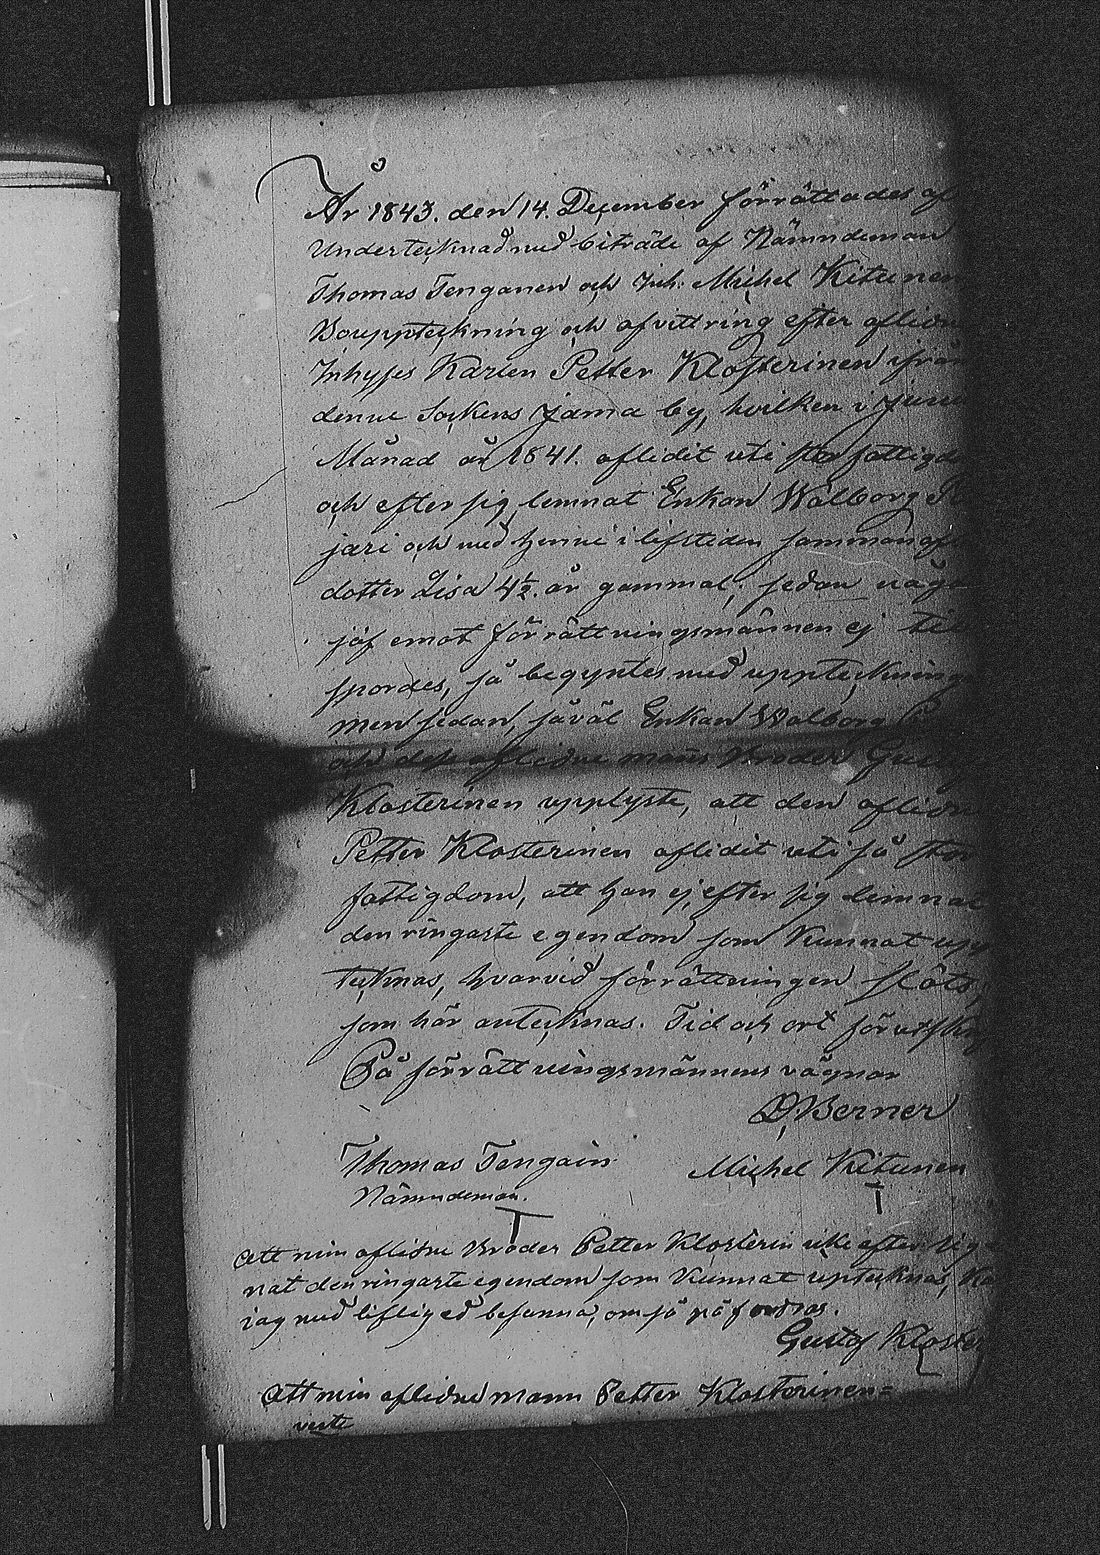 År 1843. den 14. December förrättades af
Undertecknad med biträde af Nämndeman
Thomas Tenganen och Inh: Michel Kitunen
Bouppteckning och afvittring efter aflidn
Inhyses Karlen Petter Klosterinen ifrån
denne Sockens Jama by, hvilken i Juni
Månad år 1841. aflidit uti stor fattigd
och efter sig lemnat Enkan Walborg
jæri och med henne i lifstiden sammanafl
dotter Lisa 4½. år gammal; sedan någo
jäf emot förrättningsmännen ej till
spordes, så begyntes med uppteckning
men sedan, såväl Enkan Walborg
och dess aflidne mans Broder Gust
Klosterinen upplyste, att den aflidn
Petter Klosterinen aflidit uti så stor
fattigdom, att han ej efter sig lemnat
den ringaste egendom som kunnat upp
tecknas, hvarvid förrättningen slöts,
som här antecknas. Tid och ort förutskr
På förrättningsmännens vägnar
D. Berner
Thomas Tengain Michel Kitunen
Nämndeman.
Att min aflidne Broder Petter Klosterin icke efter sig
nat den ringaste egendom som kunnat uptecknas, ka
jag med liflig ed besanna, om så påfordras.
Gustaf Kloster
Att min aflidne mann Petter Klosterinen=
verte